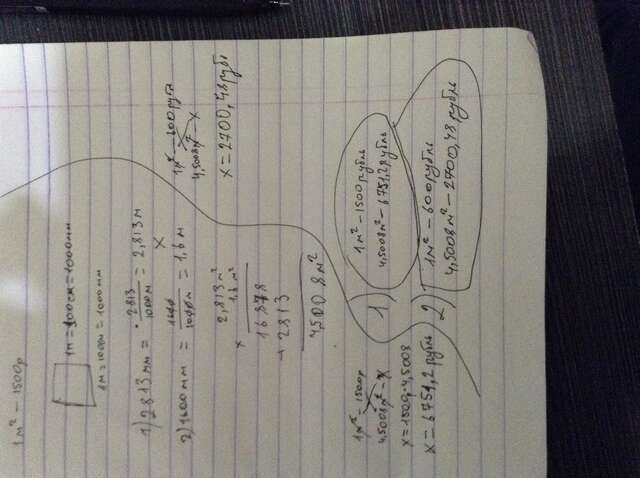 1м² – 1500р
1м = 100см = 1000мм
1м = 100см = 1000мм
1) 2813мм = 2813/1000м = 2,813м
x
2) 1600мм = 1600/1000м = 1,6м
2,813м²
x 1,6м²
16878
+ 2813
4,5008м²
1м² – 600рубль
4,5008м² – x
x = 2700,48рубль
1м² – 1500р
4,5008м² – x
x = 1500·4,5008
x = 6751,2рубль
1) 1м² – 1500рубль
4,5008м² – 6751,2рубль
2) 1м² – 600рубль
4,5008м² – 2700,48рубль